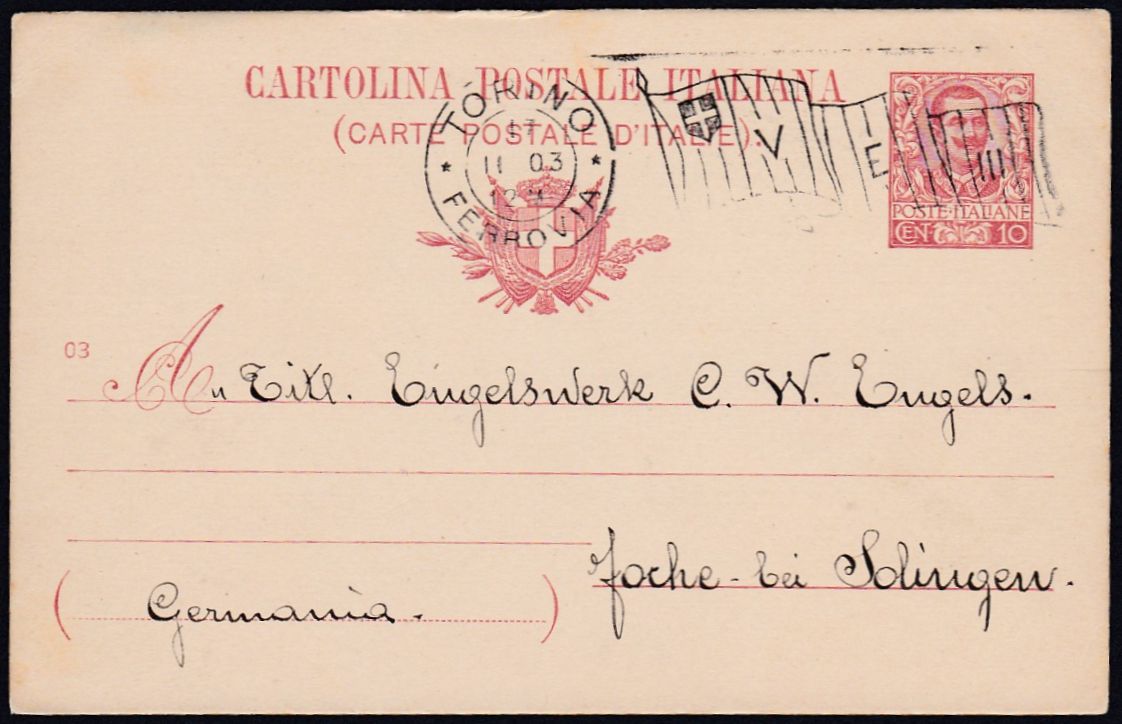 CARTOLINA POSTALE ITALIANA
(CARTE POSTALE D'ITALIE).
TORINO
17
11 03
FERROVIA
V E III
POSTE·ITALIANE
CEN 10
03
An Titl. Engelswerk C. W. Engels.
Foche - bei Solingen.
(Germania.)